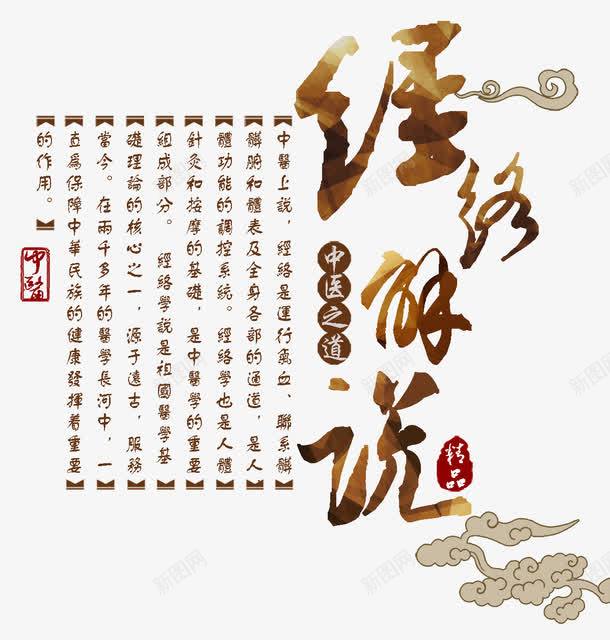 经络解说
中医之道
精品
中醫上說，經絡是運行氣血、聯系髒
髒腑和體表及全身各部的通道，是人
體功能的調控系統。經絡學也是人體
針灸和按摩的基礎，是中醫學的重要
組成部分。 經絡學說是祖國醫學基
礎理論的核心之一，源于遠古，服務
當今。在兩千多年的醫學長河中，一
直爲保障中華民族的健康發揮着重要
的作用。
中醫